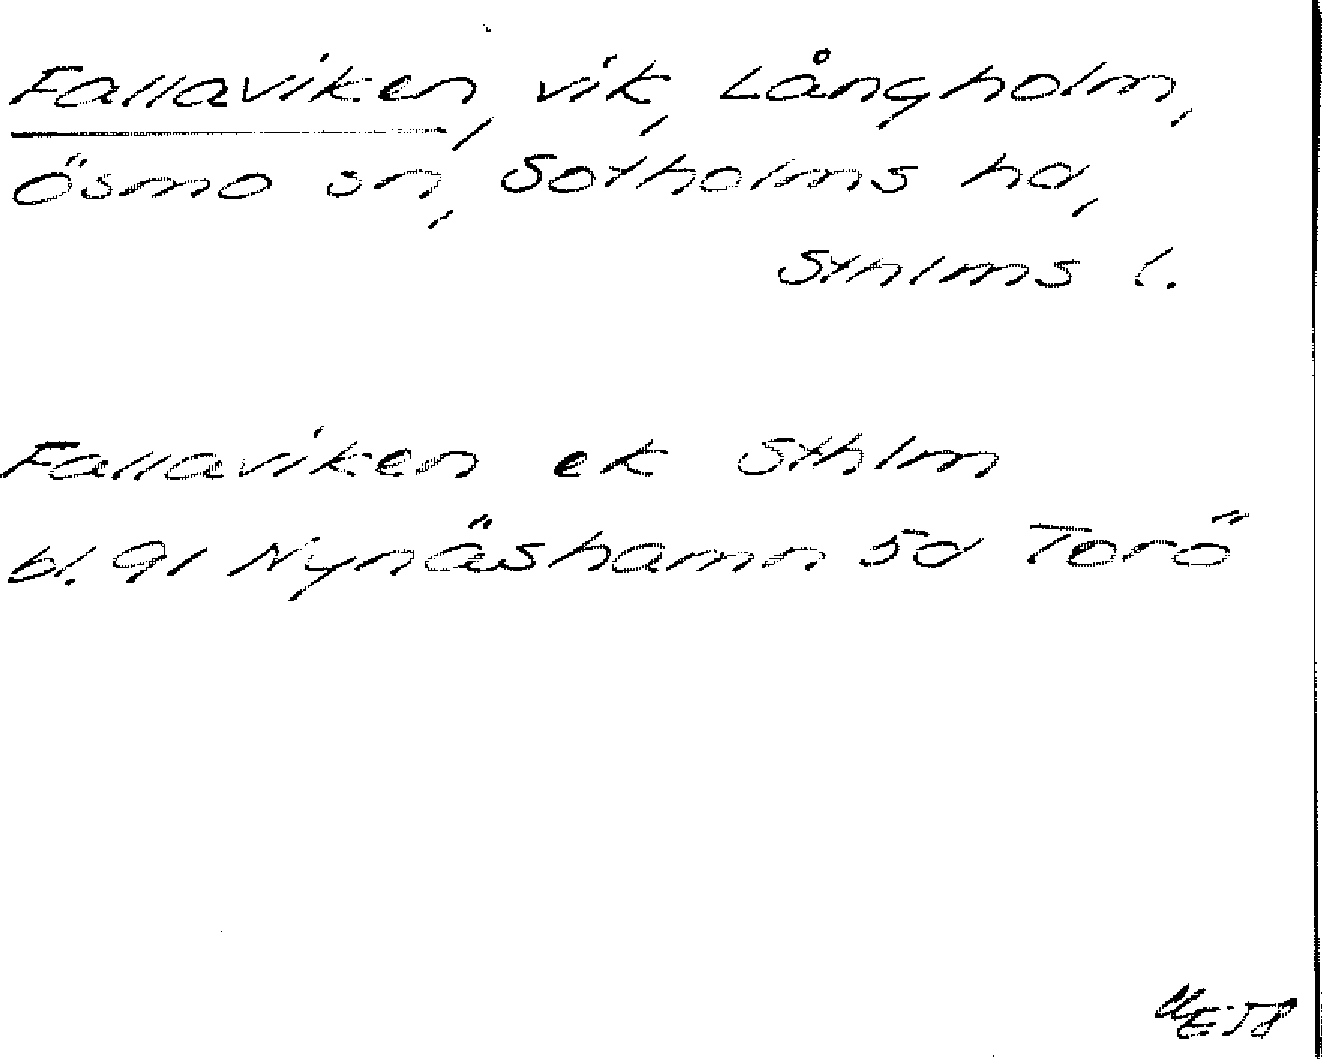 Fallaviken, vik, Långholm,
Ösmo sn, Sotholms hd,
Sthlms l.
Fallaviken ek Sthlm
bl. 91 Nynäshamn 5d Torö